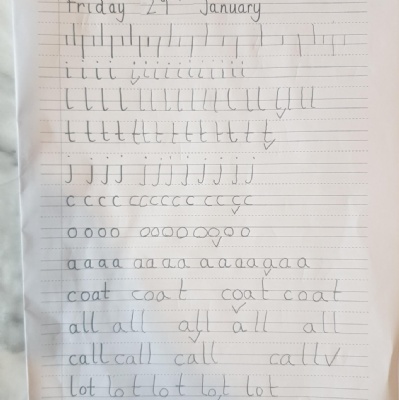 Friday 29 January
i i i i i i i i i i i i i i
l l l l l l l l l l l l l l l
t t t t t t t t t t t t t t
j j j j j j j j j j j j
c c c c c c c c c c c c c c
o o o o o o o o o o o o
a a a a a a a a a a a a a a a
coat coat coat coat
all all all all all
call call call call
lot lot lot lot lot